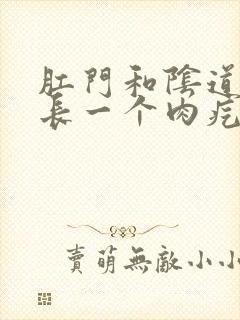 肛門和陰道
長一个肉疙
賣萌無敵小小